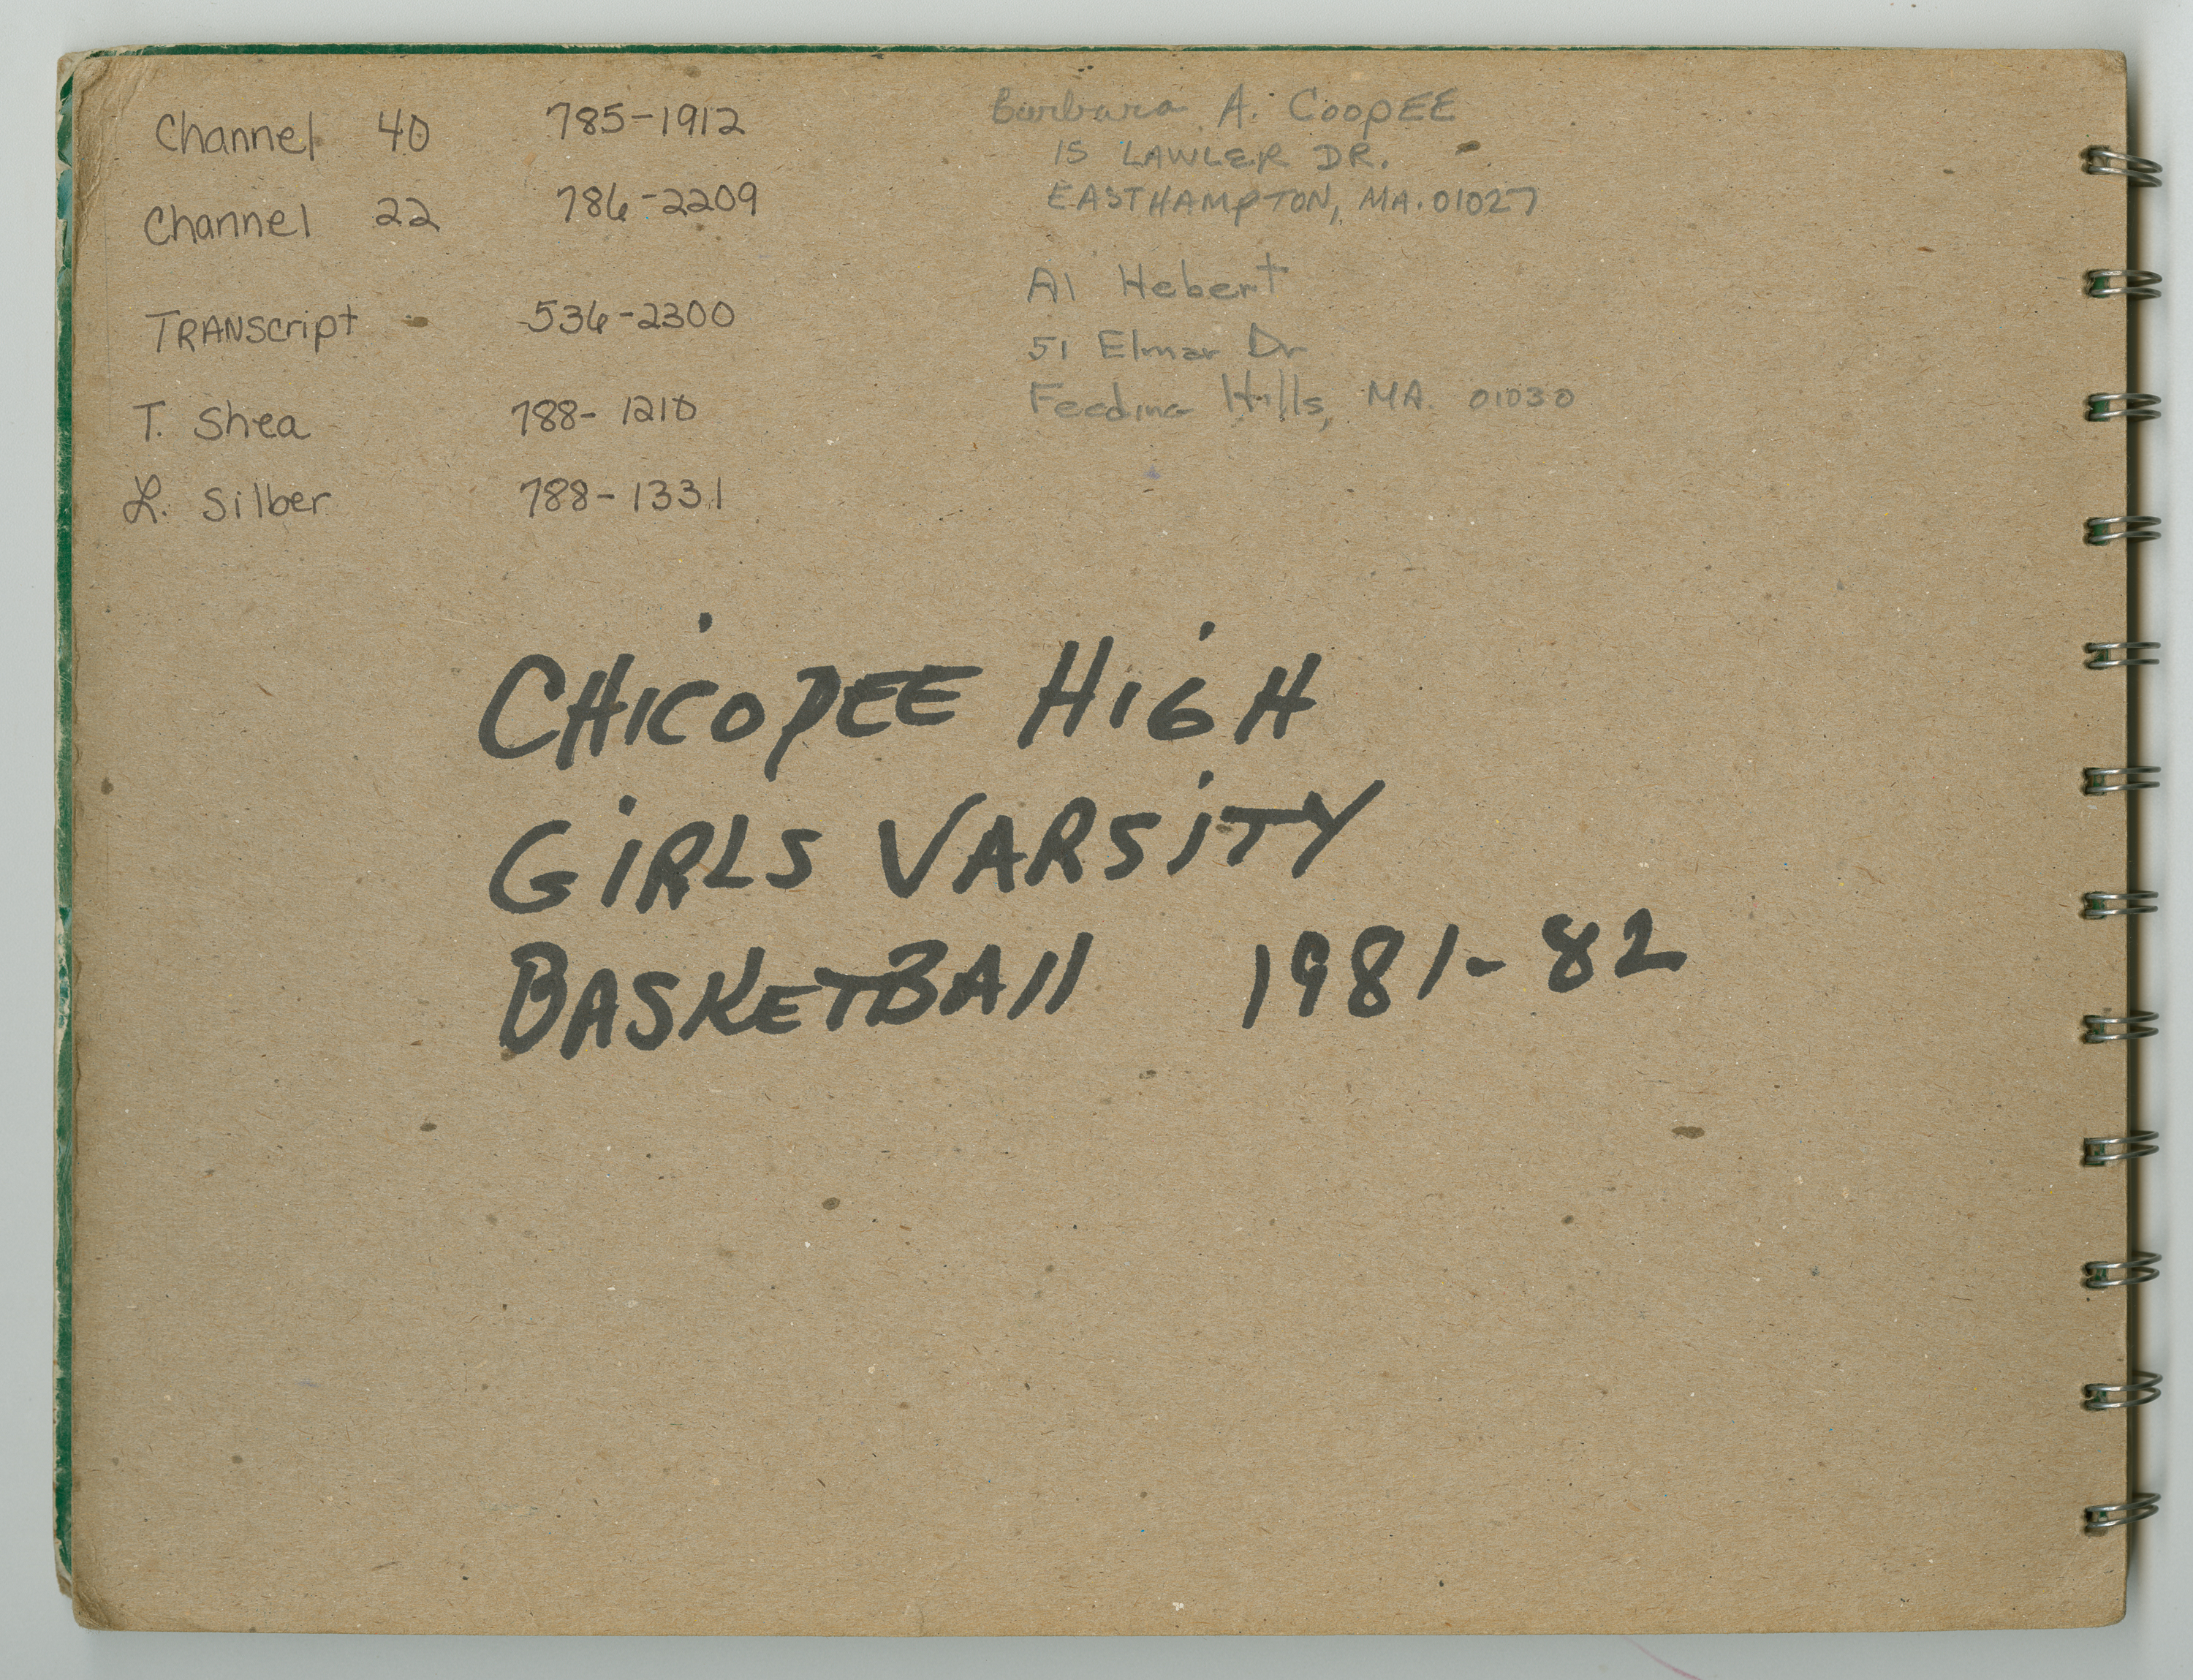 Channel 40 785-1912
Channel 22 786-2209
TRANScript 536-2300
T. Shea 788-1210
L. Silber 788-1331
Barbara A. CoopEE
15 LAWLER DR.
EASTHAMPTON, MA. 01027
Al Hebert
51 Elmar Dr
Feeding Hills, MA. 01030
CHICOPEE HIGH
GiRLS VARSiTY
BASKETBAll 1981-82